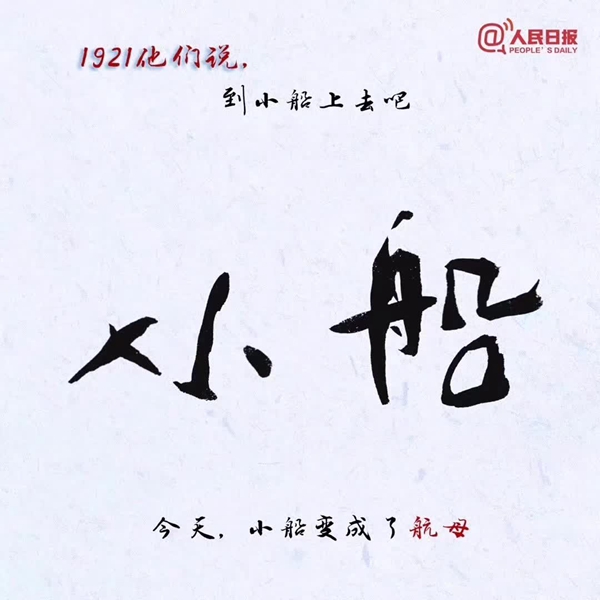 @人民日报
PEOPLE'S DAILY
1921他们说,
到小船上去吧
小船
今天,小船变成了航母